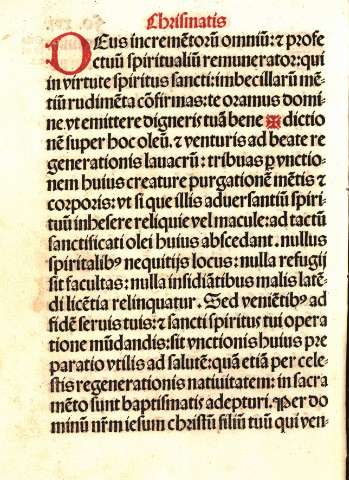 Chrismatis
DEus incremētorū omniū: ⁊ profe
ctuū spiritualiū remunerator: qui
in virtute spiritus sancti: imbecillarū mē-
tiū rudimēta cōfirmas: te oramus domi-
ne. vt emittere digneris tuā bene ✠ dictio
nē super hoc oleū. ⁊ venturis ad beate re
generationis lauacrū: tribuas ꝑ vnctio-
nem huius creature purgationē mētis ⁊
corporis: vt si que illis aduersantiū spiri-
tuū inhesere reliquie vel macule: ad tactū
sanctificati olei huius abscedant. nullus
spiritalibꝰ nequitijs locus: nulla refugij
sit facultas: nulla insidiātibus malis latē-
di licētia relinquatur. Sed veniētibꝰ ad
fidē seruis tuis: ⁊ sancti spiritus tui opera
tione mūdandis: sit vnctionis huius pre
paratio vtilis ad salutē: quā etiā per cele-
stis regenerationis natiuitatem: in sacra
mēto sunt baptismatis adepturi. Per do
minū nr̄m iesum christū filiū tuū qui ven-